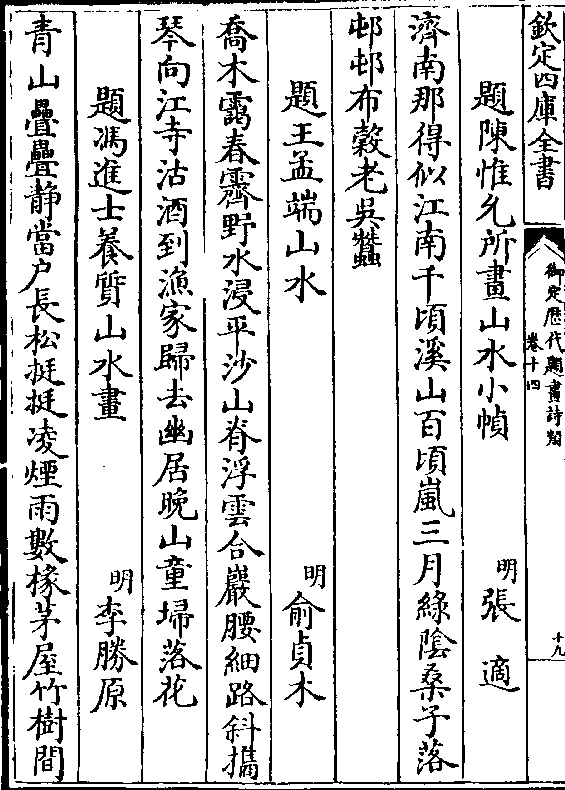 欽定四庫全書
御定歴代題畫詩類
卷十四
十九
題陳惟允所畫山水小幀
明張適
濟南那得似江南千頃溪山百頃嵐三月綠陰桑子落
邨邨布穀老吳蠶
題王孟端山水
明俞貞木
喬木靄春霽野水浸平沙山脊浮雲合巖腰細路斜攜
琴向江寺沽酒到漁家歸去幽居晚山童埽落花
題馮進士養質山水畫
明李勝原
青山疊疊静當户長松挺挺凌煙雨數椽茅屋竹樹間